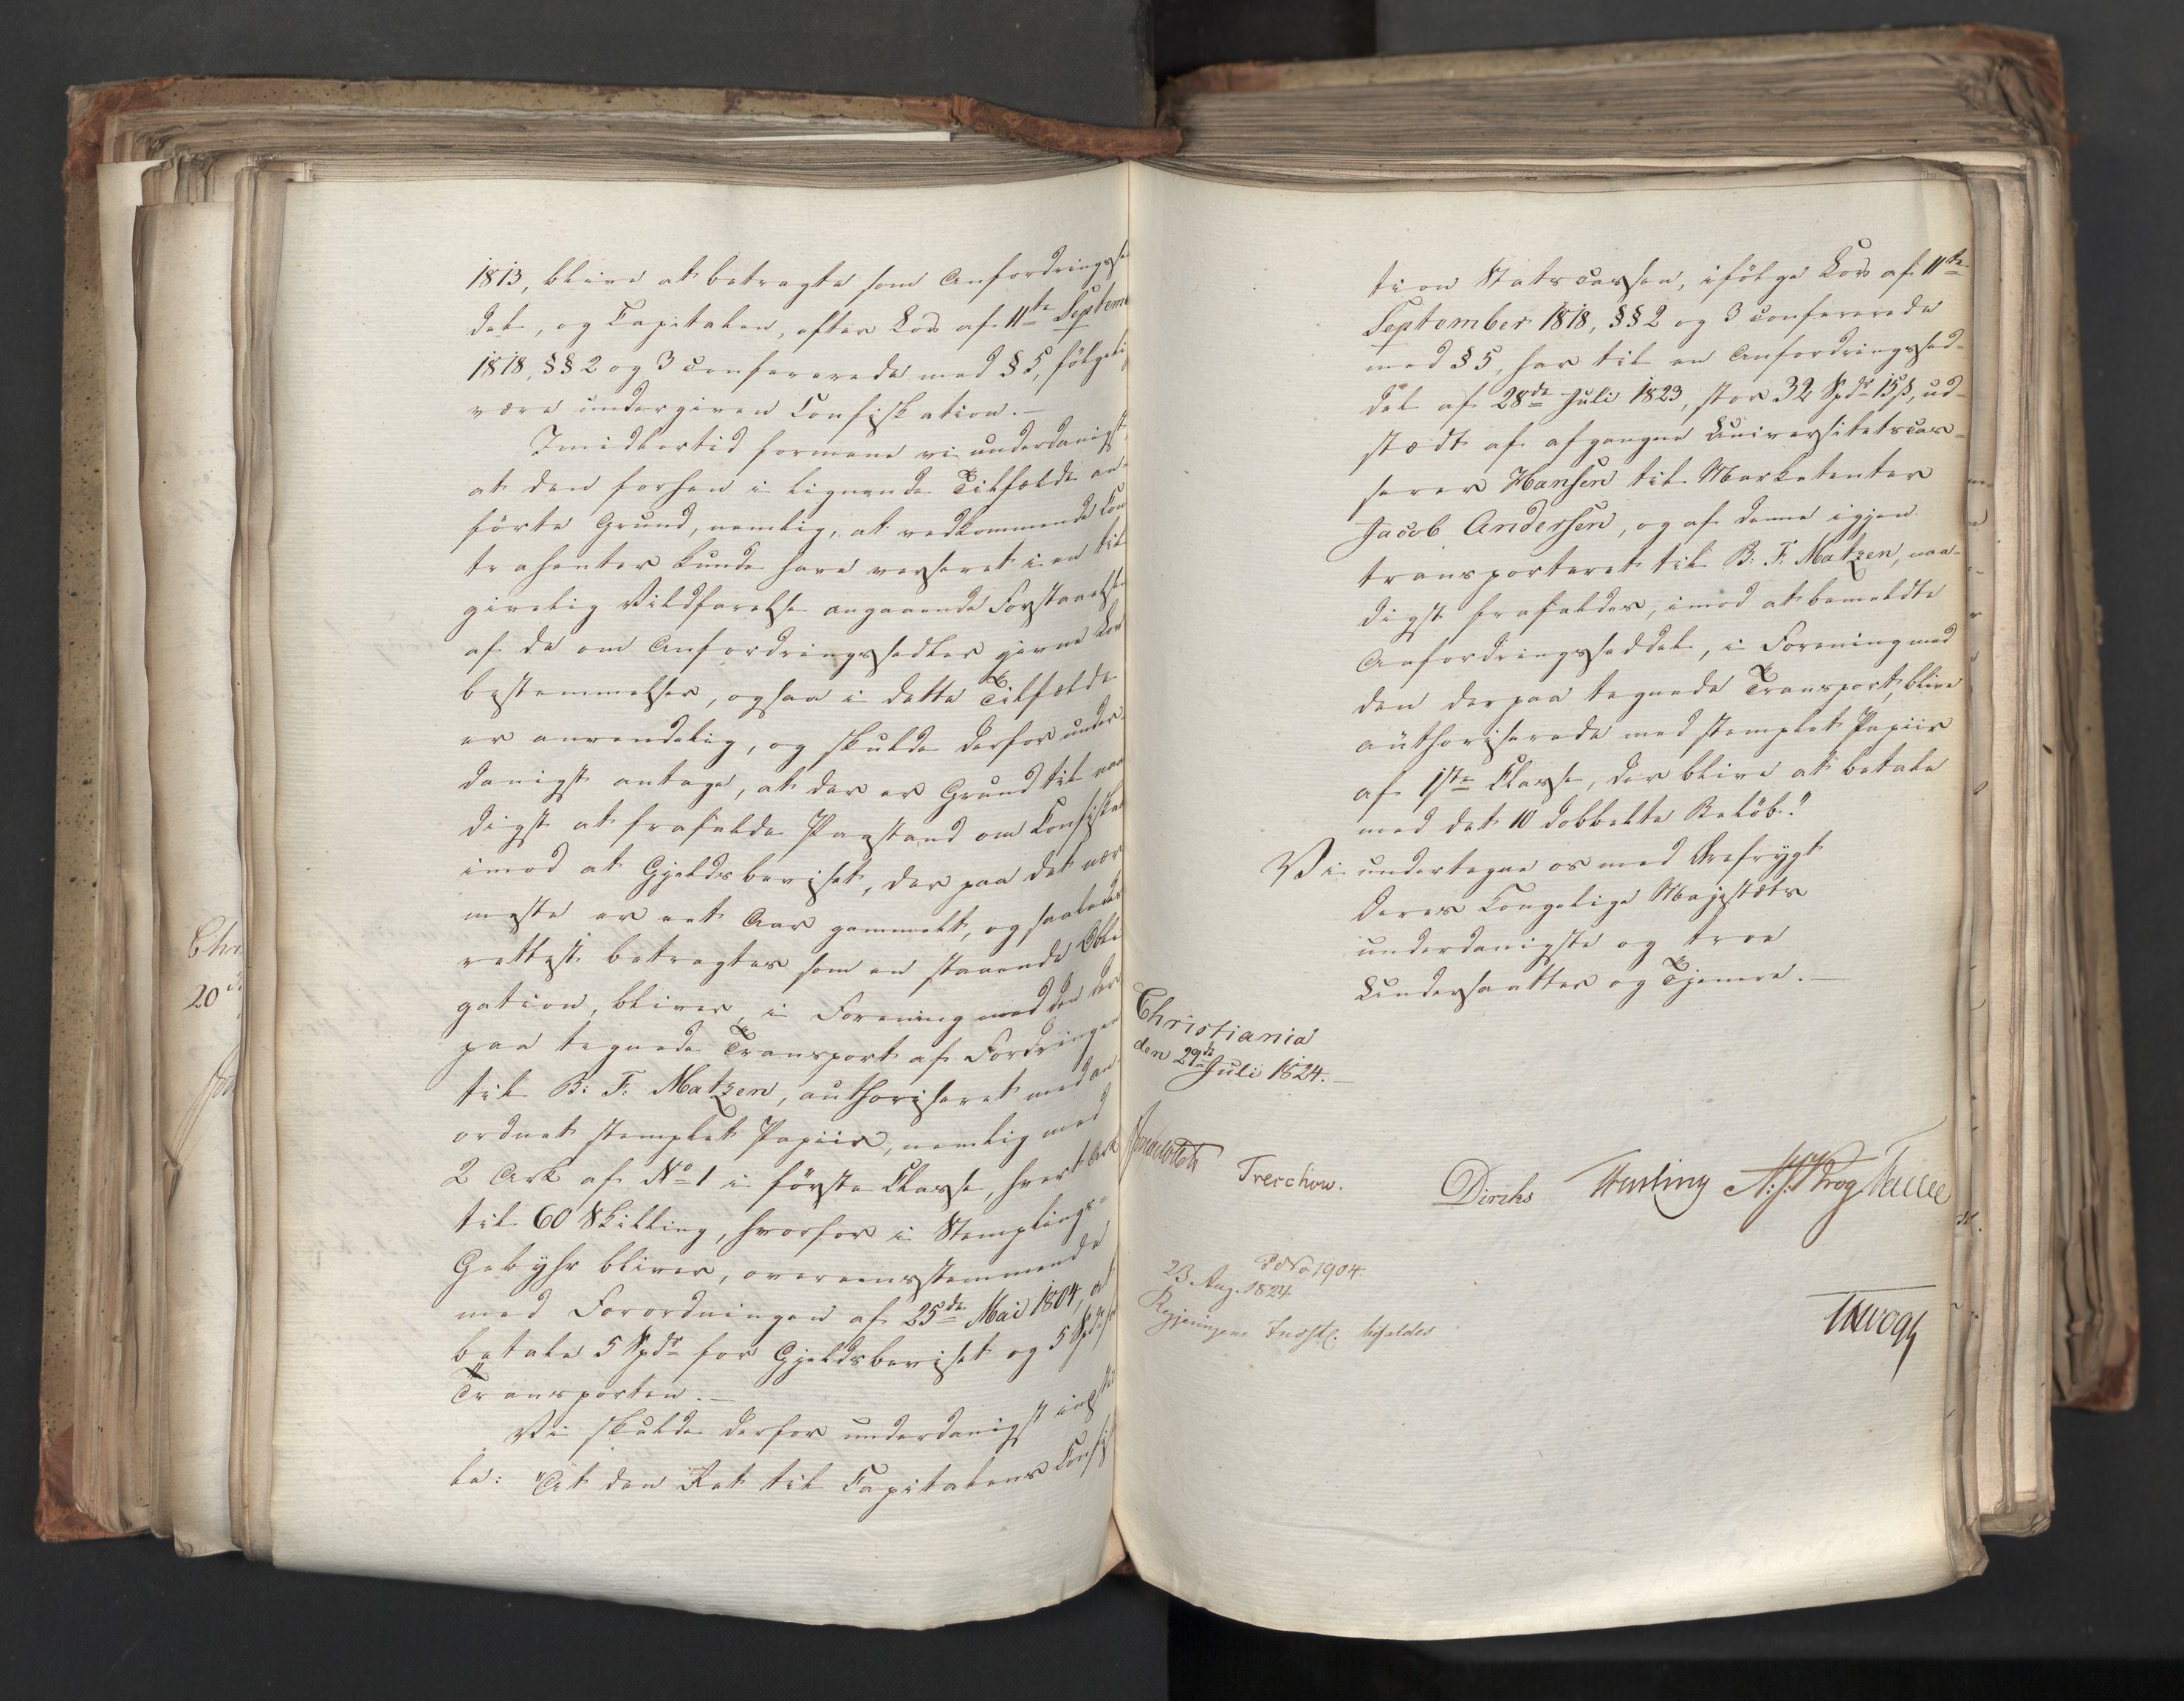 1813, blive at betragte som Anfordringsse
del, og Capitalen, efter Lov af 11te Septem
1818, §§ 2 og 3 confererede med § 5, følgeli
være undergiven Confiskation. –
Imidlertid formene vi underdanigst
at den forhen i lignende Tilfælde an-
førte Grund, nemlig, at vedkommende Con
trahenter kunde have verseret i en til
givelig Vildfarelse angaaende Forstaaelse
af de om Anfordringssedler givne Lov
bestemmelser, ogsaa i dette Tilfælde
er anvendelig, og skulde derfor under
danigst antage, at der er Grund til naa
digst at frafalde Paastand om Confiska
imod at Gjeldsbeviset, der paa det nær
meste er eet Aar gammelt, og saaledes
rettest betragtes som en staaende Obli
gation, bliver, i Forening med den der
paa tegnede Transport af Fordringen
til B: F: Matzen, authoriseret med an
ordnet stemplet Papiir, nemlig med
2 Ark af No 1 i første Classe, hvert Ark
til 60 Skilling, hvorfor i Stemplings-
Gebyhr bliver, overeensstemmende
med Forordningen af 25de Mai 1804, at
betale 5 Spdr for Gjeldsbeviset og 5 Spdr for
Transporten. –
Vi skulde derfor underdanigst indstil
le: "At den Ret til Capitalens Confis
tion Statscassen, ifølge Lov af 11te
September 1818, §§ 2 og 3 confererede
med § 5, har til en Anfordringssed-
del af 28de Juli 1823, stor 32 Spdr 15 ß, ud-
stædt af afgangne Universitetscas-
serer Hansen til Marketenter
Jacob Andersen, og af denne igjen
transporteret til B: F: Matzen, naa-
digst frafaldes, imod at bemeldte
Anfordringsseddel, i Forening med
den derpaa tegnede Transport, blive
authoriserede med stemplet Papiir
af 1ste Classe, der blive at betale
med det 10 dobbelte Beløb."
Vi undertegne os med Ærefrygt
Deres Kongelige Majestæts
underdanigste og troe
Undersaatter og Tjenere. –
Christiania
den 29de Juli 1824. –
Treschow.
Diriks
N:J:Krog
23. Aug. 1824
Regjeringens Indst. bifaldes